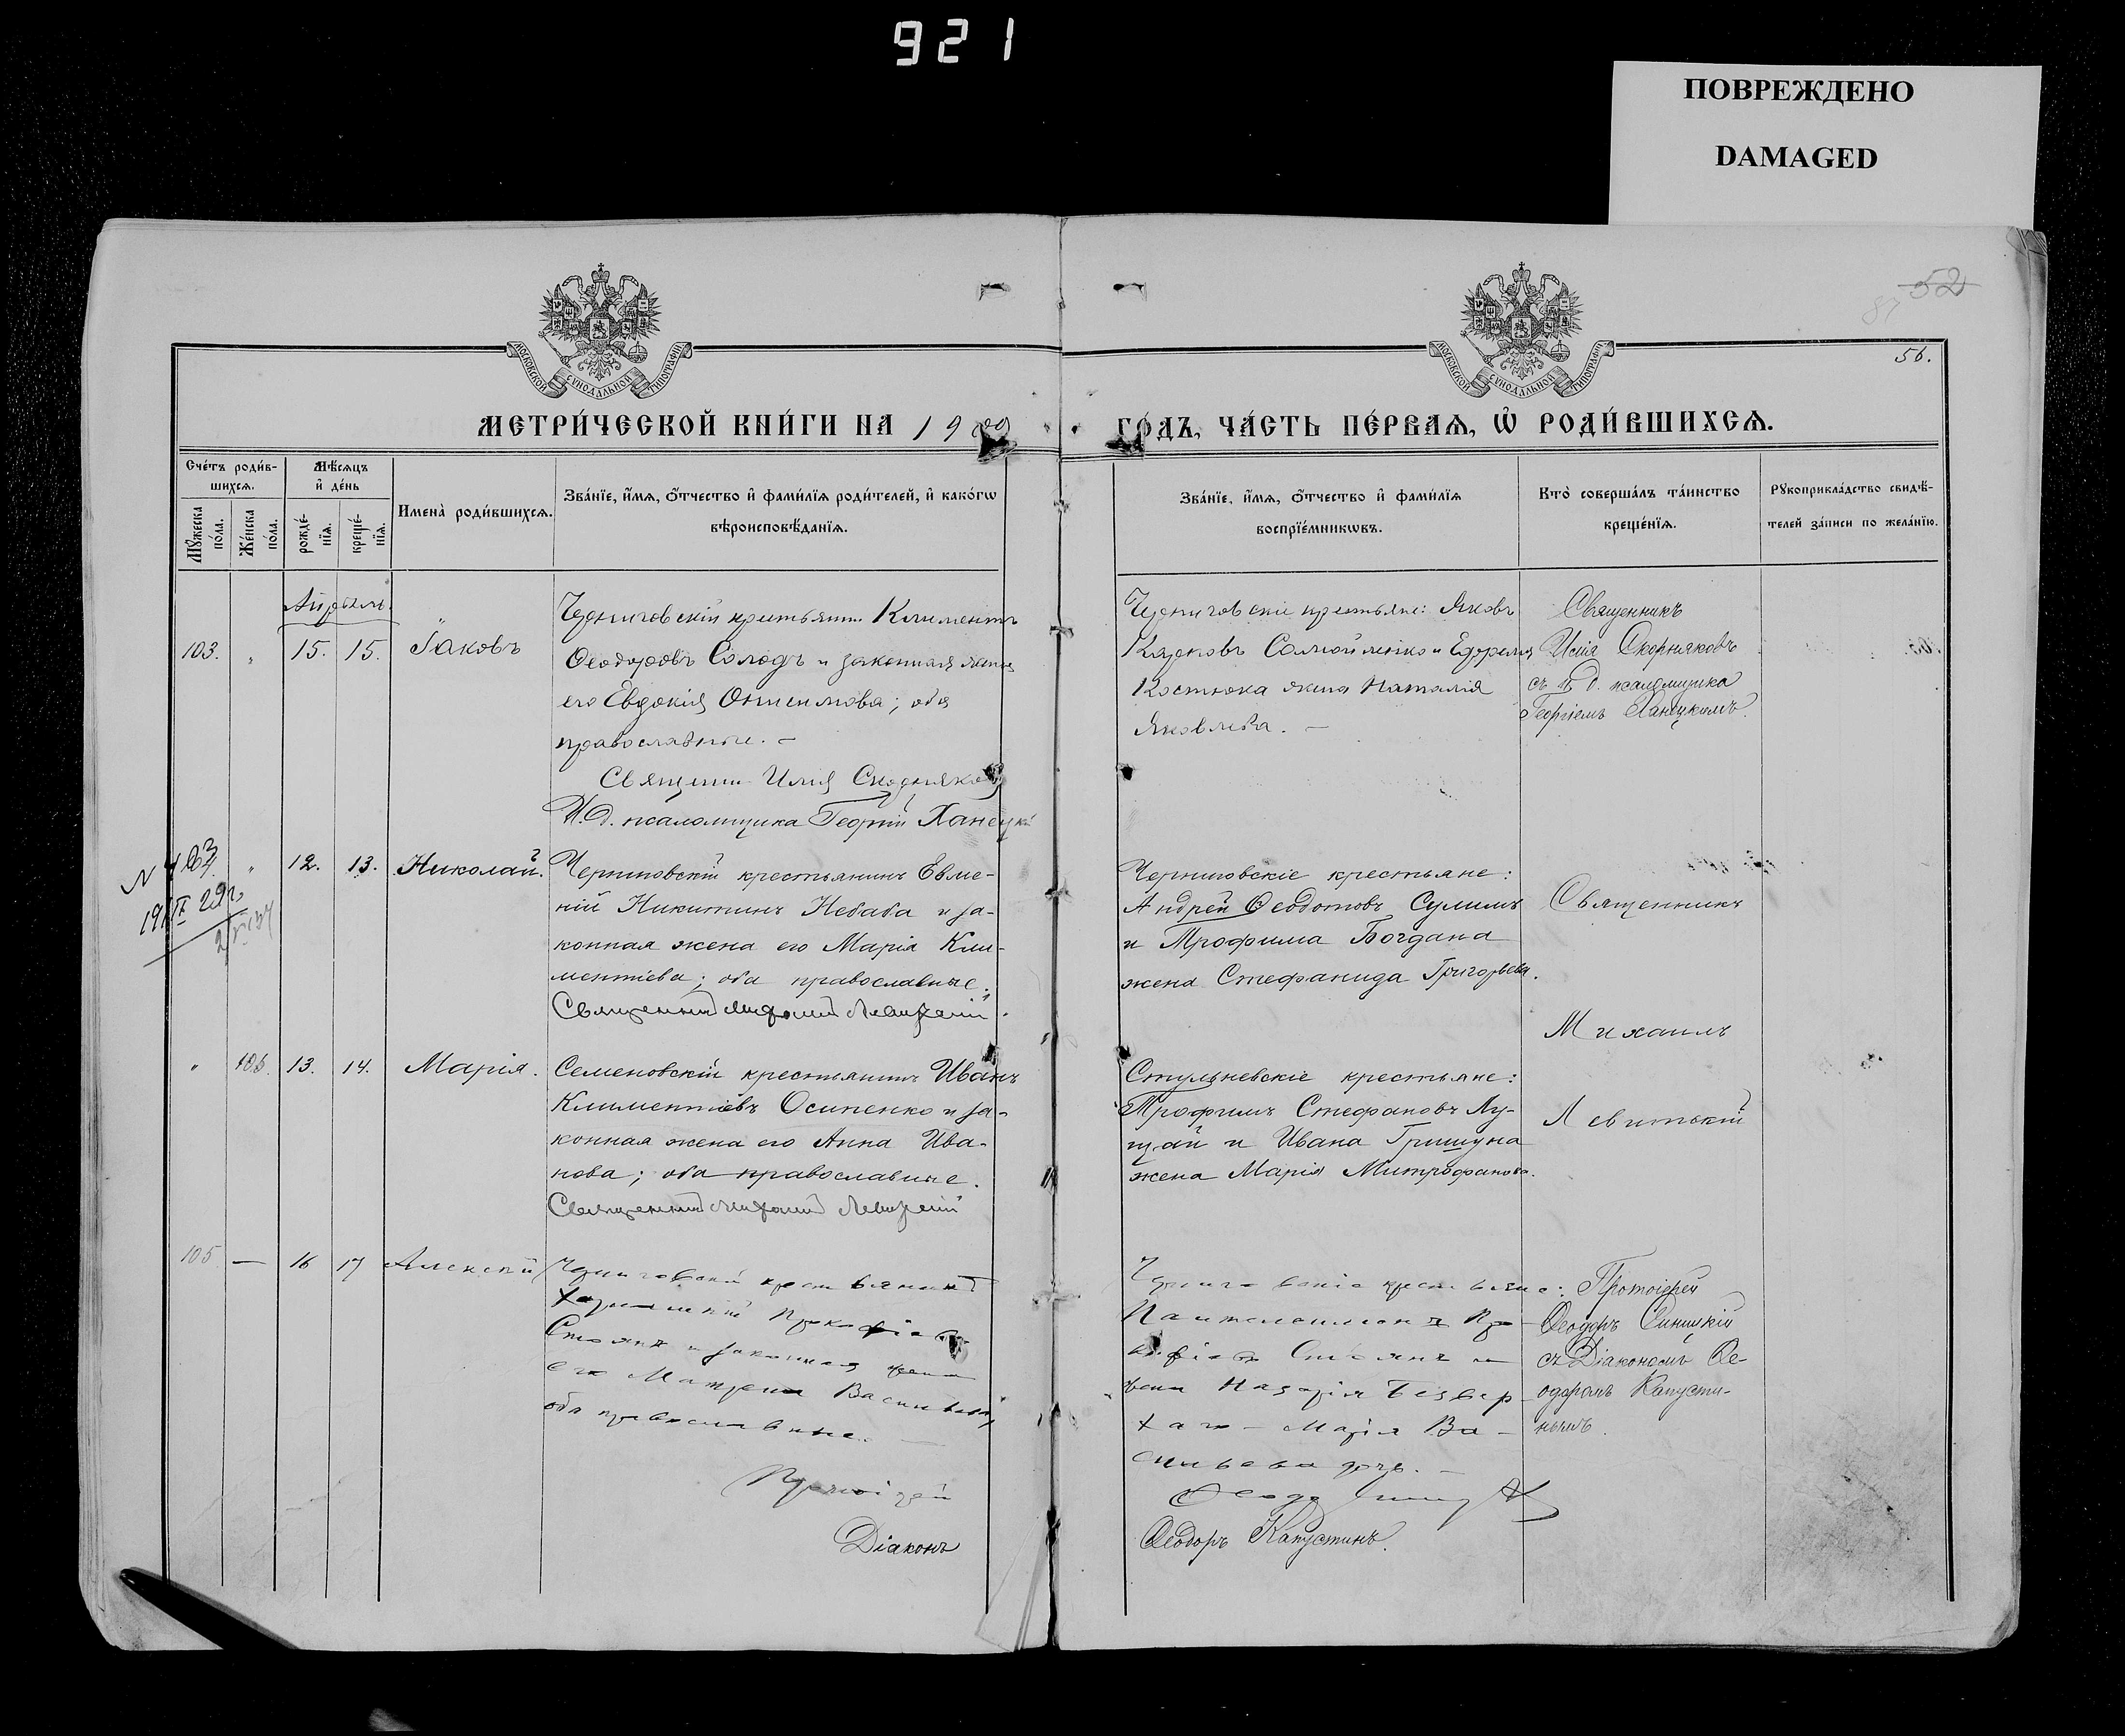 921
ПОВРЕЖДЕНО
DAMAGED
52
56.
МОСКОВСКОЙ СУНОДАЛЬНОЙ ТИПОГРАФІИ
МОСКОВСКОЙ СУНОДАЛЬНОЙ ТИПОГРАФІИ
МЕТРИ́ЧЕСКОЙ КНИ́ГИ НА 1900
ГО́ДЪ, ЧА́СТЬ ПЕ́РВАѦ, Ѡ҆ РОДИ́ВШИХСѦ.
Сче́тъ роди́в-
шихсѧ.
Мꙋ́жеска по́ла.
Же́нска по́ла.
Мѣ́сѧцъ
и҆ де́нь
рожде́-
нїѧ.
креще́-
нїѧ.
Имена̀ роди́вшихсѧ.
Зва́нїе, и҆́мѧ, ѻ҆́тчество и҆ фами́лїѧ роди́телей, и҆ како́гѡ
вѣроисповѣ́данїѧ.
Зва́нїе, и҆́мѧ, ѻ҆́тчество и҆ фами́лїѧ
воспрїе́мникѡвъ.
Кто̀ соверша́лъ та́инство
креще́нїѧ.
Рꙋкоприкла́дство свидѣ́-
телей за́писи по жела́нїю.
Апрѣль.
103. " 15. 15. Іаковъ
Черниговскій крестьянинъ Климентъ
Ѳеодоровъ Солодъ и законная жена
его Евдокія Онисимова; оба
православные. –
Священн. Илія Скорняковъ
И.д. псаломщика Георгій Ханецкій
Черниговскіе крестьяне: Яковъ
Карповъ Самойленко и Ефрема
Костюка жена Наталія
Яковлева. –
Священникъ
Илія Скорняковъ
съ и. д. псаломщика
Георгіемъ Ханецкимъ.
" 12. 13. Николай.
Черниговскій крестьянинъ Евме-
ній Никитинъ Небаба и за-
конная жена его Марія Кли-
ментіева; оба православные.
Священникъ Михаилъ Левитскій.
Черниговскіе крестьяне:
Андрей Ѳеодотовъ Сулимъ
и Трофима Богдана
жена Стефанида Григорьева.
Священникъ
Михаилъ
Левитскій
" 106. 13. 14. Марія.
Семеновскій крестьянинъ Иванъ
Климентіевъ Осипенко и за-
конная жена его Анна Ива-
нова; оба православные.
Священникъ Михаилъ Левитскій
Стульневскіе крестьяне:
Трофимъ Стефановъ Лу-
щай и Ивана Гришуна
жена Марія Митрофанова.
105 — 16 17 Алексѣй
Черниговскій крестьянинъ
Прокофіевъ
Стоянъ и законная жена
его Матрена Васильева,
оба православные. —
Протоіерей
Діаконъ
Черниговскіе крестьяне:
Пантелеимонъ Про-
кофіевъ Стоянъ и
жена Назарія Безвер-
хаго – Марія Ва-
сильева дочь. –
Ѳеодоръ Капустинъ.
Протоіерей
Ѳеодоръ Синицкій
съ Діакономъ Ѳе-
одоромъ Капусти-
нымъ.